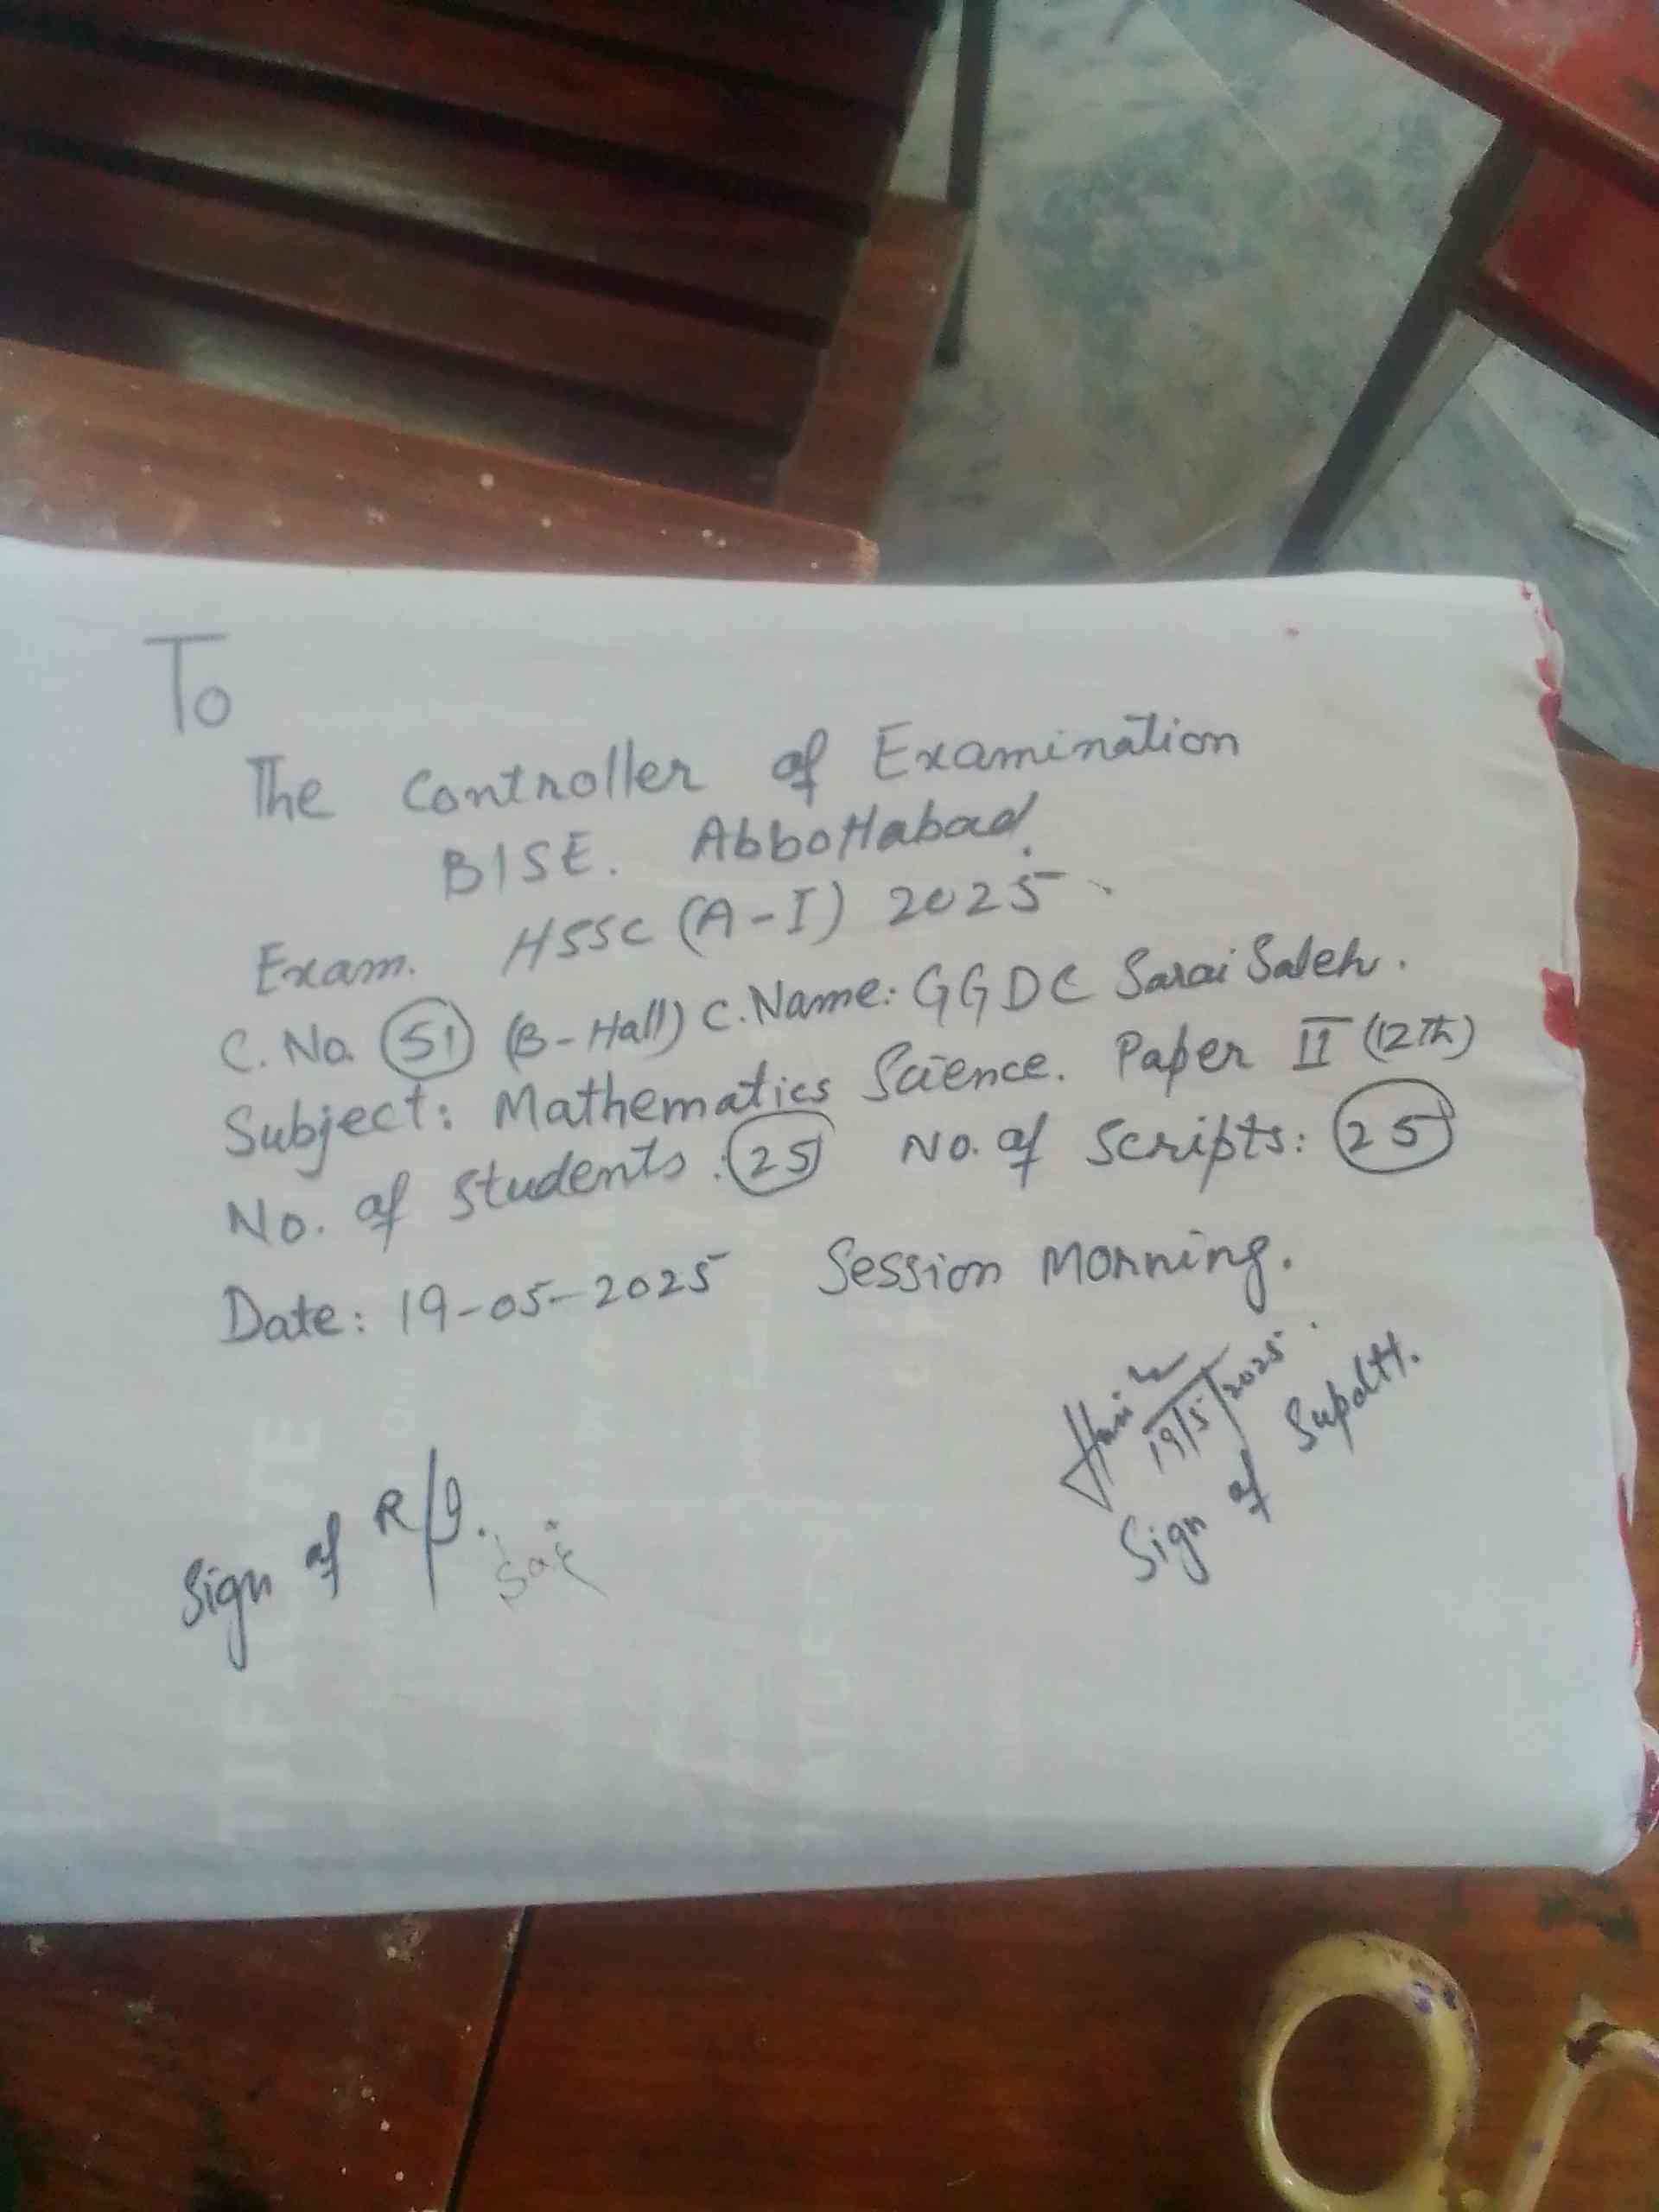 To
The Controller of Examination
BISE. Abbottabad.
Exam. HSSC (A-I) 2025.
C. No. 51 (B-Hall) C. Name: GGDC Sarai Saleh.
Subject: Mathematics Science. Paper II (12th)
No. of Students: 25 No. of Scripts: 25
Date: 19-05-2025 Session Morning.
19/5/2025.
Sign of Supdtt.
Sign of R/I.